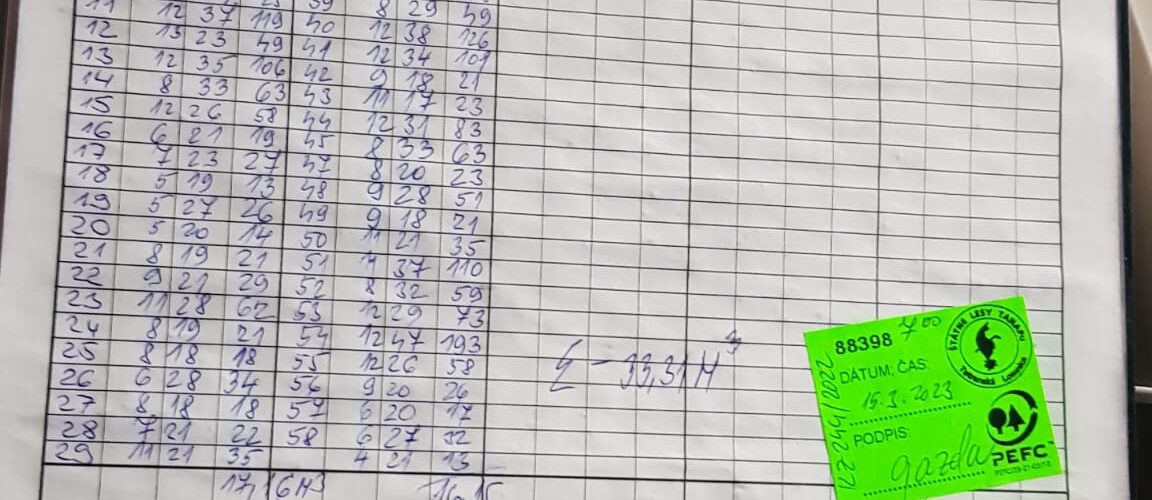 12 13 23 49 40 12 38 126
13 12 35 106 41 12 34 101
14 8 33 63 42 9 18 21
15 12 26 58 43 11 17 23
16 6 21 19 44 12 31 83
17 7 23 27 45 8 33 63
18 5 19 13 47 8 20 23
19 5 27 26 48 9 28 51
20 5 20 14 49 9 18 21
21 8 19 21 50 11 21 35
22 9 21 29 51 37 110
23 11 28 62 52 8 32 59
24 8 19 21 53 12 29 73
25 8 18 18 54 12 47 193
26 6 28 34 55 12 26 58
27 8 18 18 56 9 20 26
28 7 21 22 57 6 20 17
29 11 21 35 58 6 27 32
4 21 13
17,16 M3
Σ - 33,31 M3
88398 700
DÁTUM, ČAS:
15.3.2023
PODPIS:
gazda
ŠTÁTNE LESY TANAPU
Tatranská Lomnica
PEFC